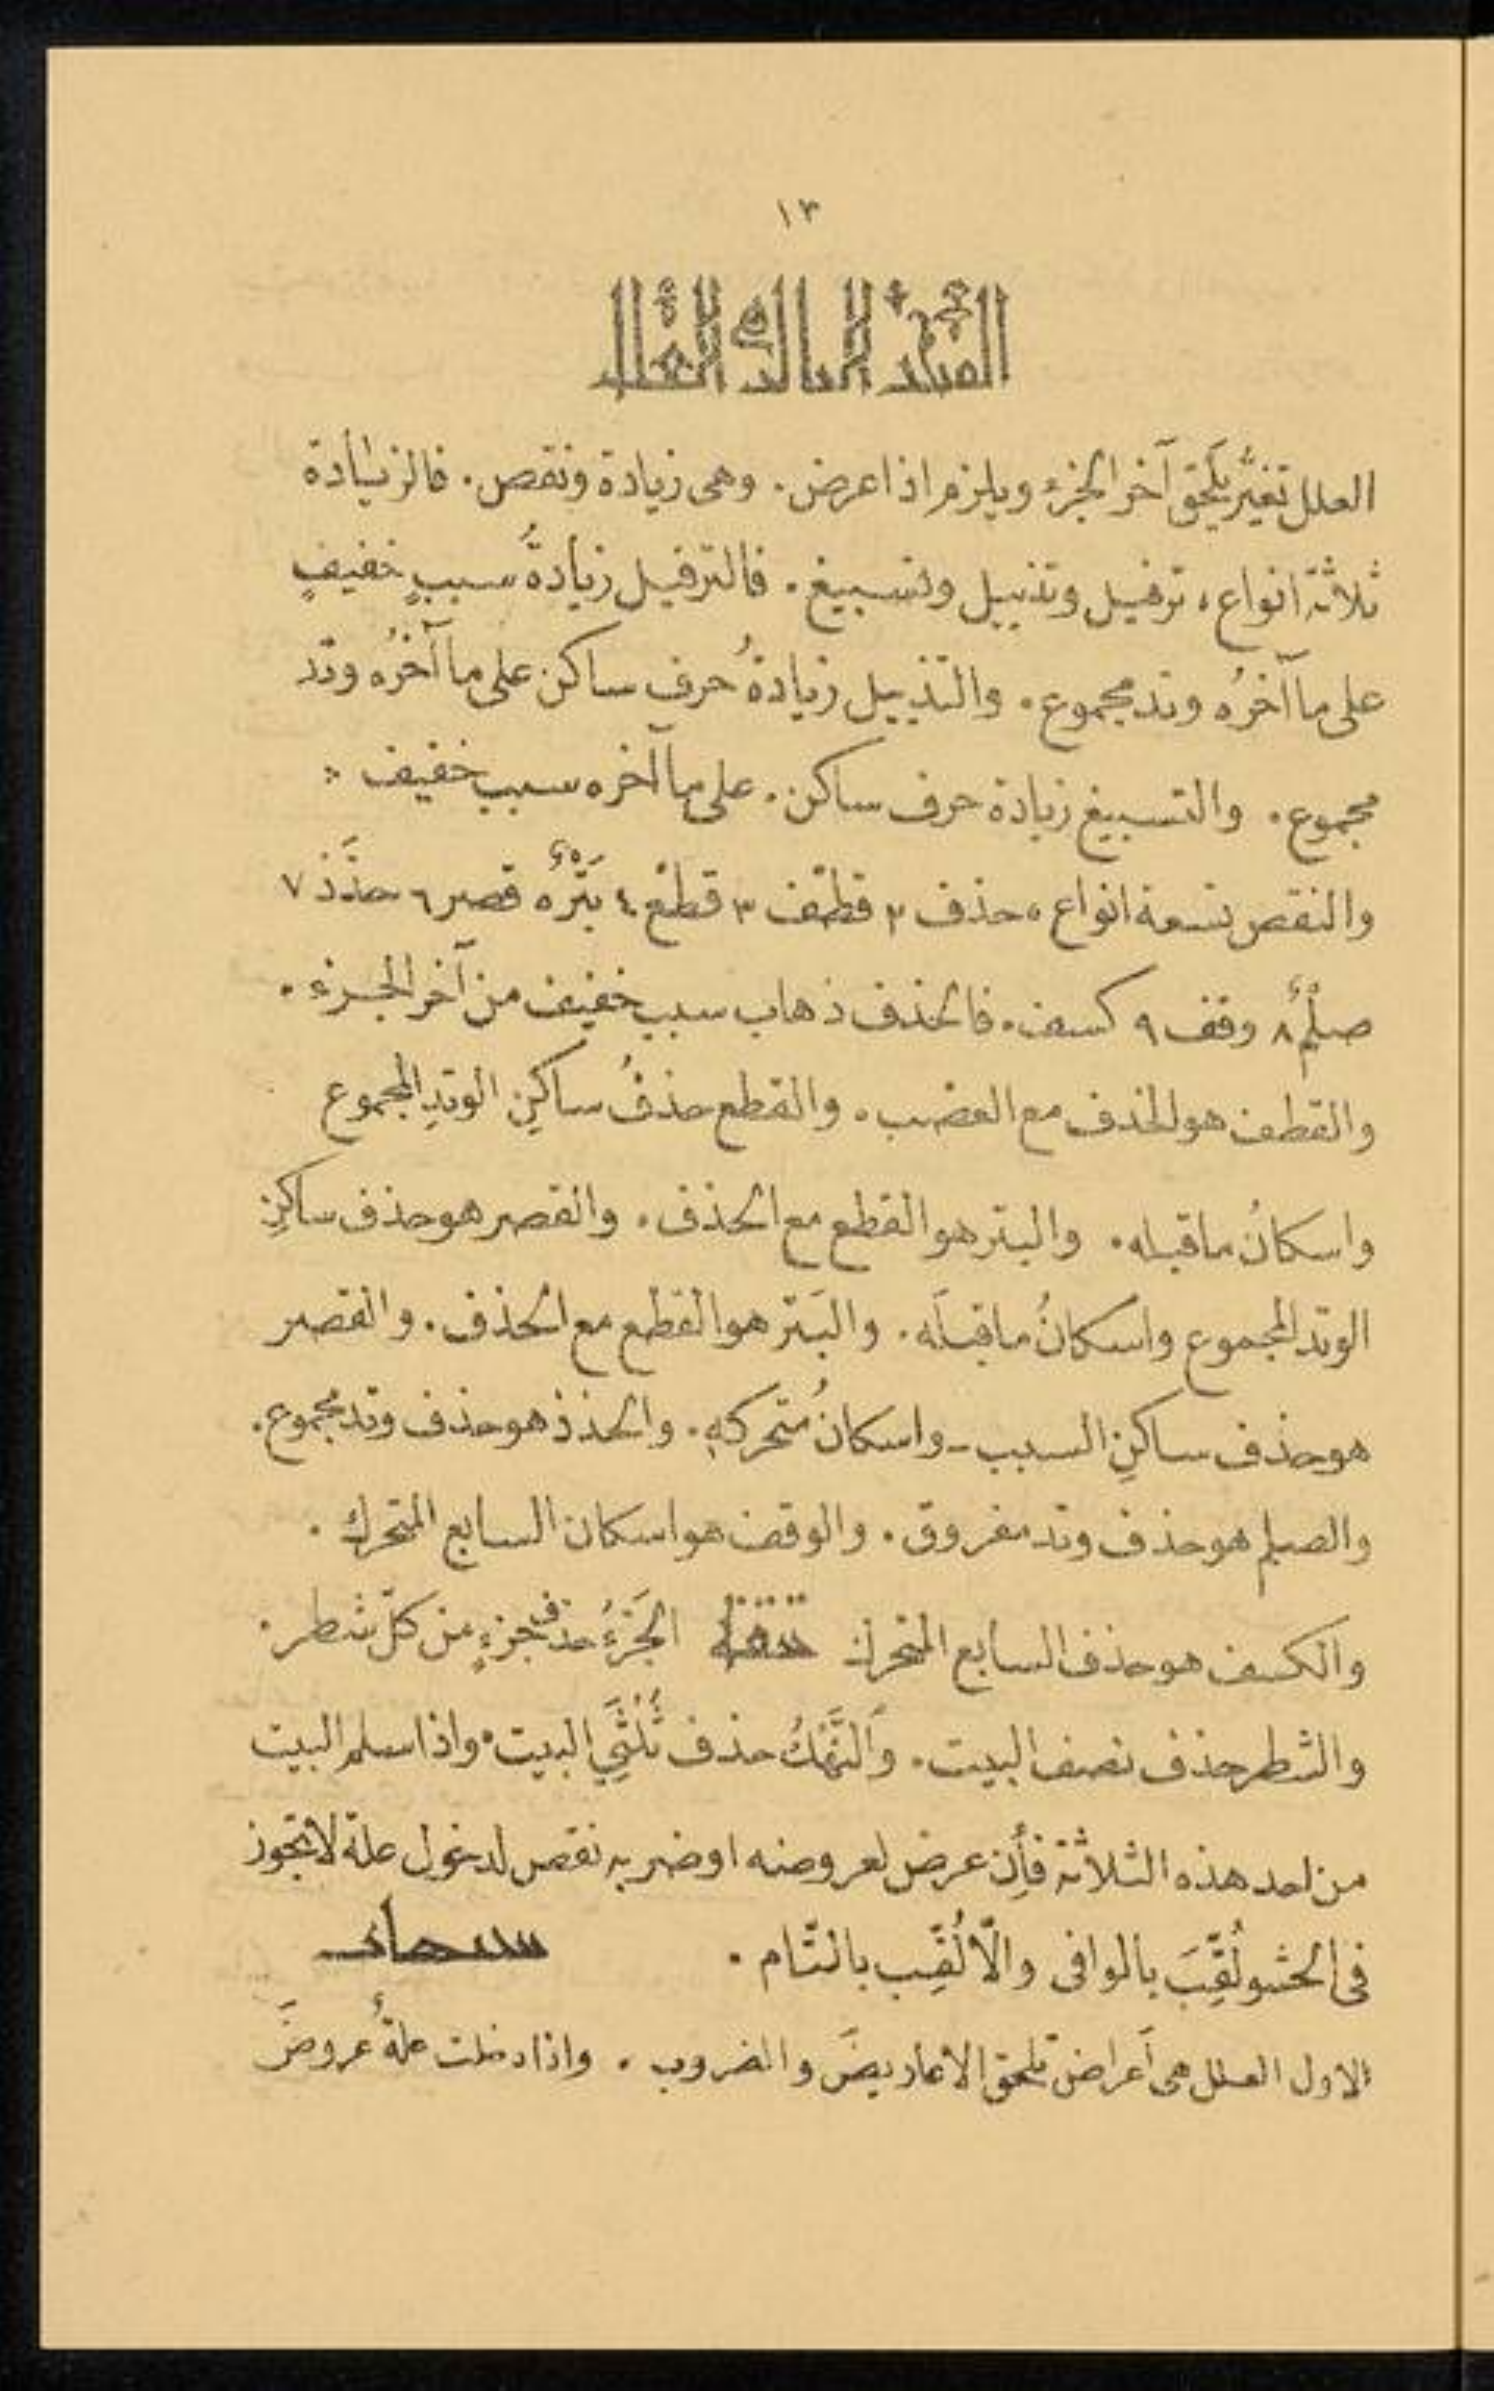 ١٣
العلل تغيُّر يَلحَق آخر الجزء ويلزم اذا عرض. وهى زيادة ونقص. فالزيادة
ثلاثة انواع، ترفيل وتذييل وتسبيغ. فالترفيل زيادةُ سببٍ خفيفٍ
على ما آخرُه وتد مجموع. والتذييل زيادةُ حرف ساكن على ما آخرُه وتد
مجموع. والتسبيغ زيادة حرف ساكن. على ما آخره سبب خفيف
والنقص تسعة انواع، حذف ٢ قطْف ٣ قطْع ٤ بَتْرٌ ٥ قصر ٦ حذَذ ٧
صلْمٌ ٨ وقف ٩ كسف. فالحذف ذهاب سبب خفيف من آخر الجزء.
والقطف هو الحذف مع العضب. والقطع حذفُ ساكنِ الوتدِ المجموع
واسكانُ ماقبله. والبتر هو القطع مع الحذف. والقصر هو حذف ساكنِ
الوتد المجموع واسكانُ ماقبلَه. والبَتر هو القطع مع الحذف. والقصر
هو حذف ساكنِ السبب - واسكانُ مُتحركهِ. والحذذ هو حذف وتد مجموع.
والصلم هو حذف وتد مفروق. والوقف هو اسكان السابع المتحرك.
والكسف هو حذف السابع المتحرك الجَزْءُ حذف جزءٍ من كلّ شطر.
والشطر حذف نصف البيت. وَالنَّهْكُ حذف ثُلُثَيِ البيت. واذا سلم البيت
من احد هذه الثلاثة فأِن عرض لعروضه او ضربه نقص لدخول علة لا تجوز
فى الحشو لُقِّبَ بالوافى والّا لُقِّب بالتّام.
الاول العلل هى أَعراض تلحق الاعاريضَ والضروب. واذا دخلت علةٌ عروضَ